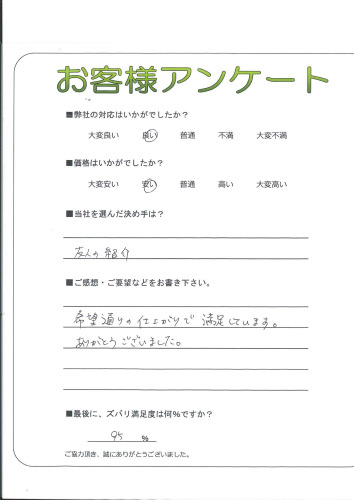 お客様アンケート
■弊社の対応はいかがでしたか？
大変良い 良い 普通 不満 大変不満
■価格はいかがでしたか？
大変安い 安い 普通 高い 大変高い
■当社を選んだ決め手は？
友人の紹介
■ご感想・ご要望などをお書き下さい。
希望通りの仕上がりで満足しています。
ありがとうございました。
■最後に、ズバリ満足度は何％ですか？
95 ％
ご協力頂き、誠にありがとうございました。